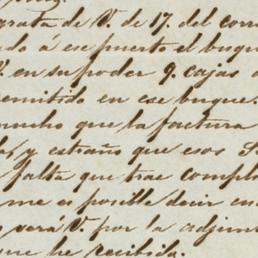 grata de V. de 17. del corri
ado á ese puerto el buqu
V. en su poder 9. cajas
remitido en ese buque.
mucho que la factura
y estraño que esos S
falta que trae compl
me es posible decir en
verá V. por la adjun
que he recibido.